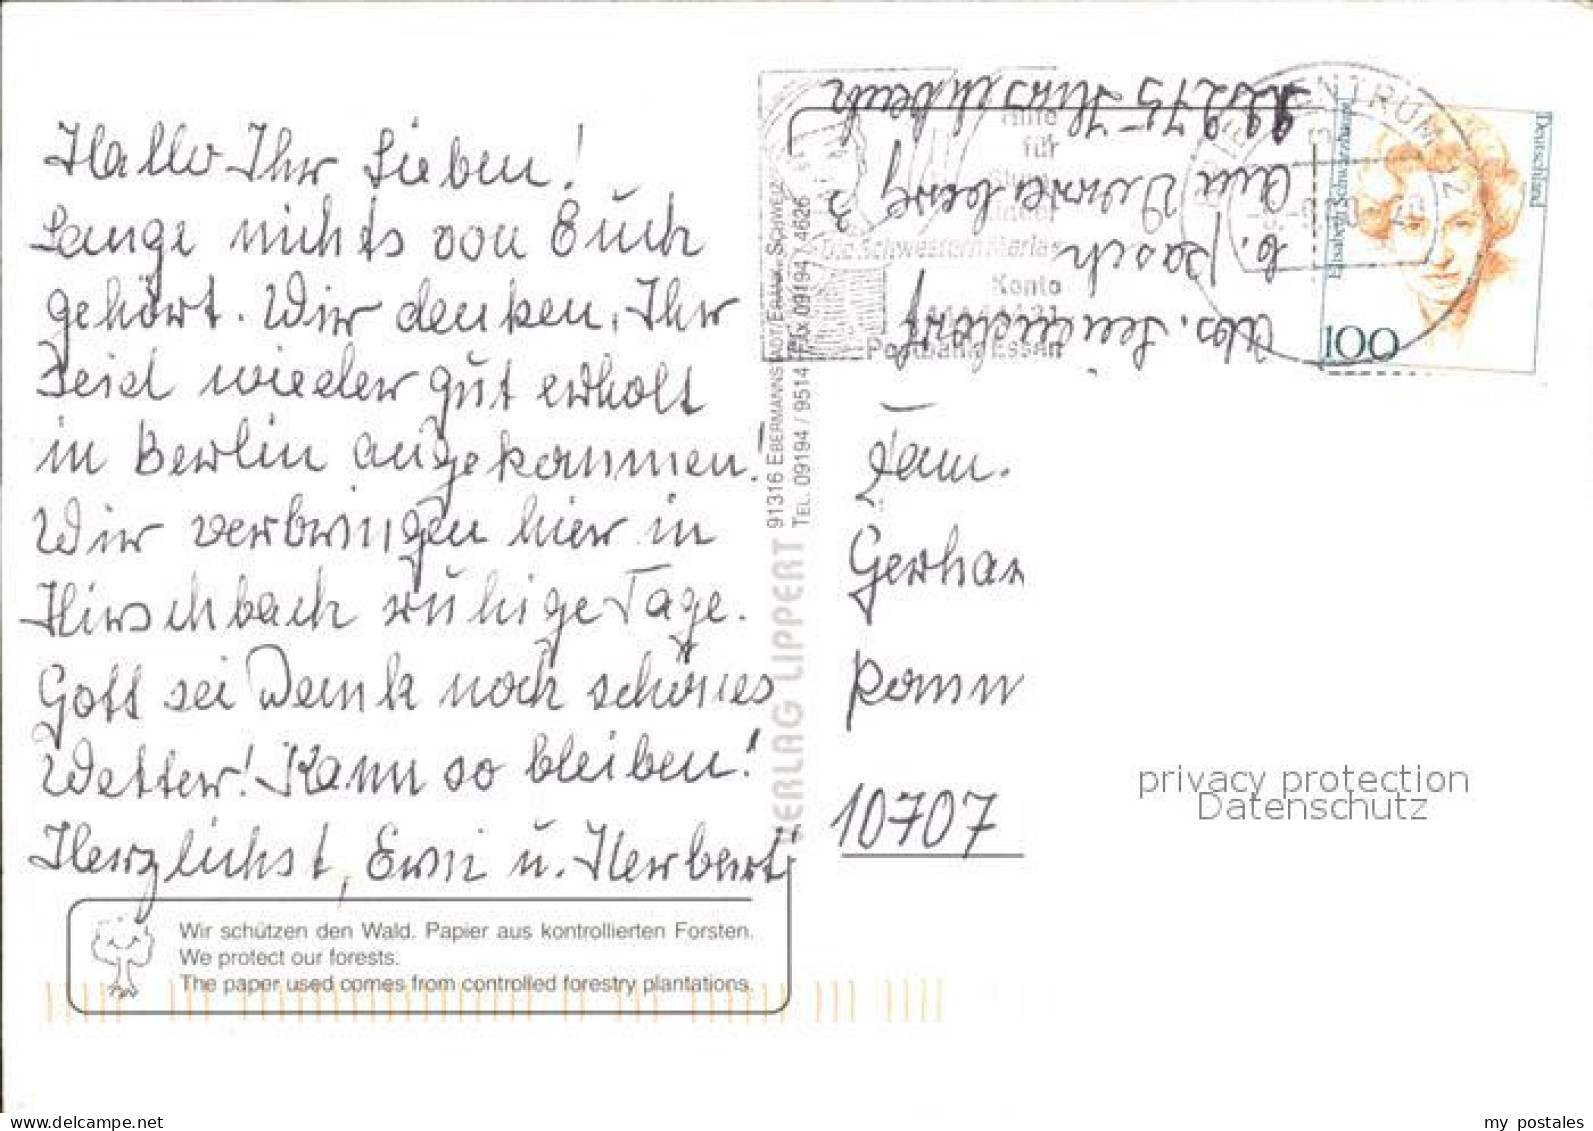 Hallo Ihr Lieben!
Lange nichts von Euch
gehört. Wir denken, Ihr
seid wieder gut erholt
in Berlin angekommen.
Wir verbringen hier in
Hirschbach ruhige Tage.
Gott sei Dank noch schönes
Wetter! Kann so bleiben!
Herzlichst, Erni u. Herbert
Wir schützen den Wald. Papier aus kontrollierten Forsten.
We protect our forests.
The paper used comes from controlled forestry plantations.
VERLAG LIPPERT
91316 EBERMANNSTADT/FRÄNK. SCHWEIZ
TEL. 09194 / 9514 FAX 09194 / 4626
für
Die Schwestern Marias
Konto
Postbank Essen
Abs.
b. Pasch
3
92275 Hirschbach
BRIEFZENTRUM
Deutschland
Elisabeth Schwarzhaupt
100
Fam.
Gerhar
Pomm
10707
privacy protection
Datenschutz
www.delcampe.net
my_postales